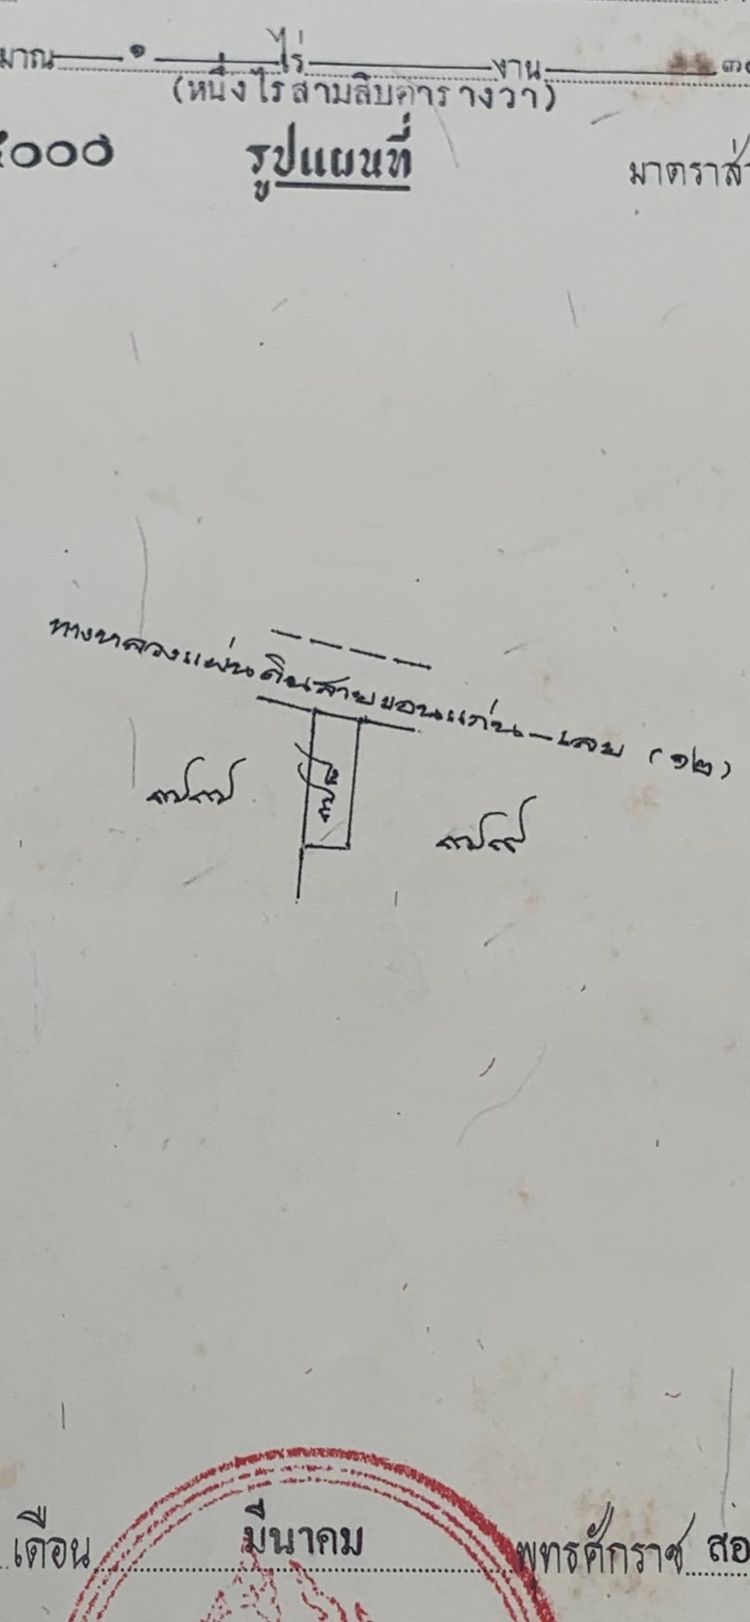 มาณ ๑ ไร่ งาน ๓๐
(หนึ่งไร่สามสิบตารางวา)
๕๐๐๐ รูปแผนที่ มาตราส่
ทางหลวงแผ่นดินสายขอนแก่น-เลย (๑๒)
๗๗ ๗๘ ๗๙
เดือน มีนาคม พุทธศักราช สอ